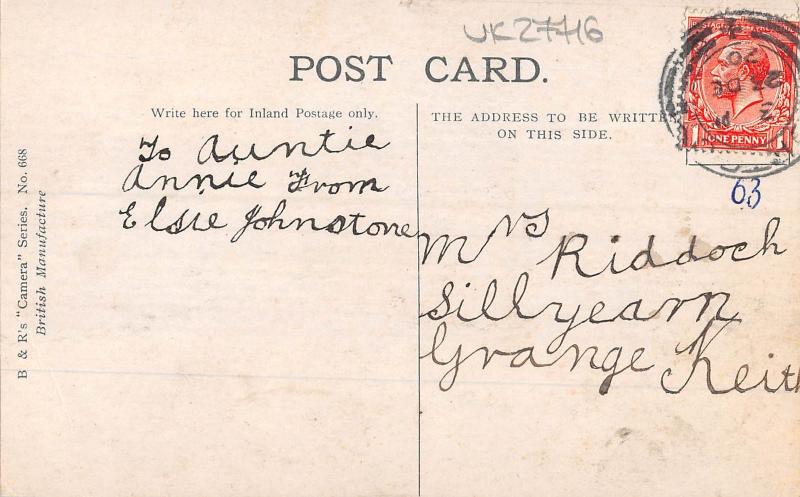 UK27716
POST CARD.
Write here for Inland Postage only.
THE ADDRESS TO BE WRITTEN
ON THIS SIDE.
ONE PENNY
63
To Auntie
Annie From
Elsie Johnstone
Mrs Riddoch
Sillyearn
Grange Keith
B & R's "Camera" Series. No. 668
British Manufacture